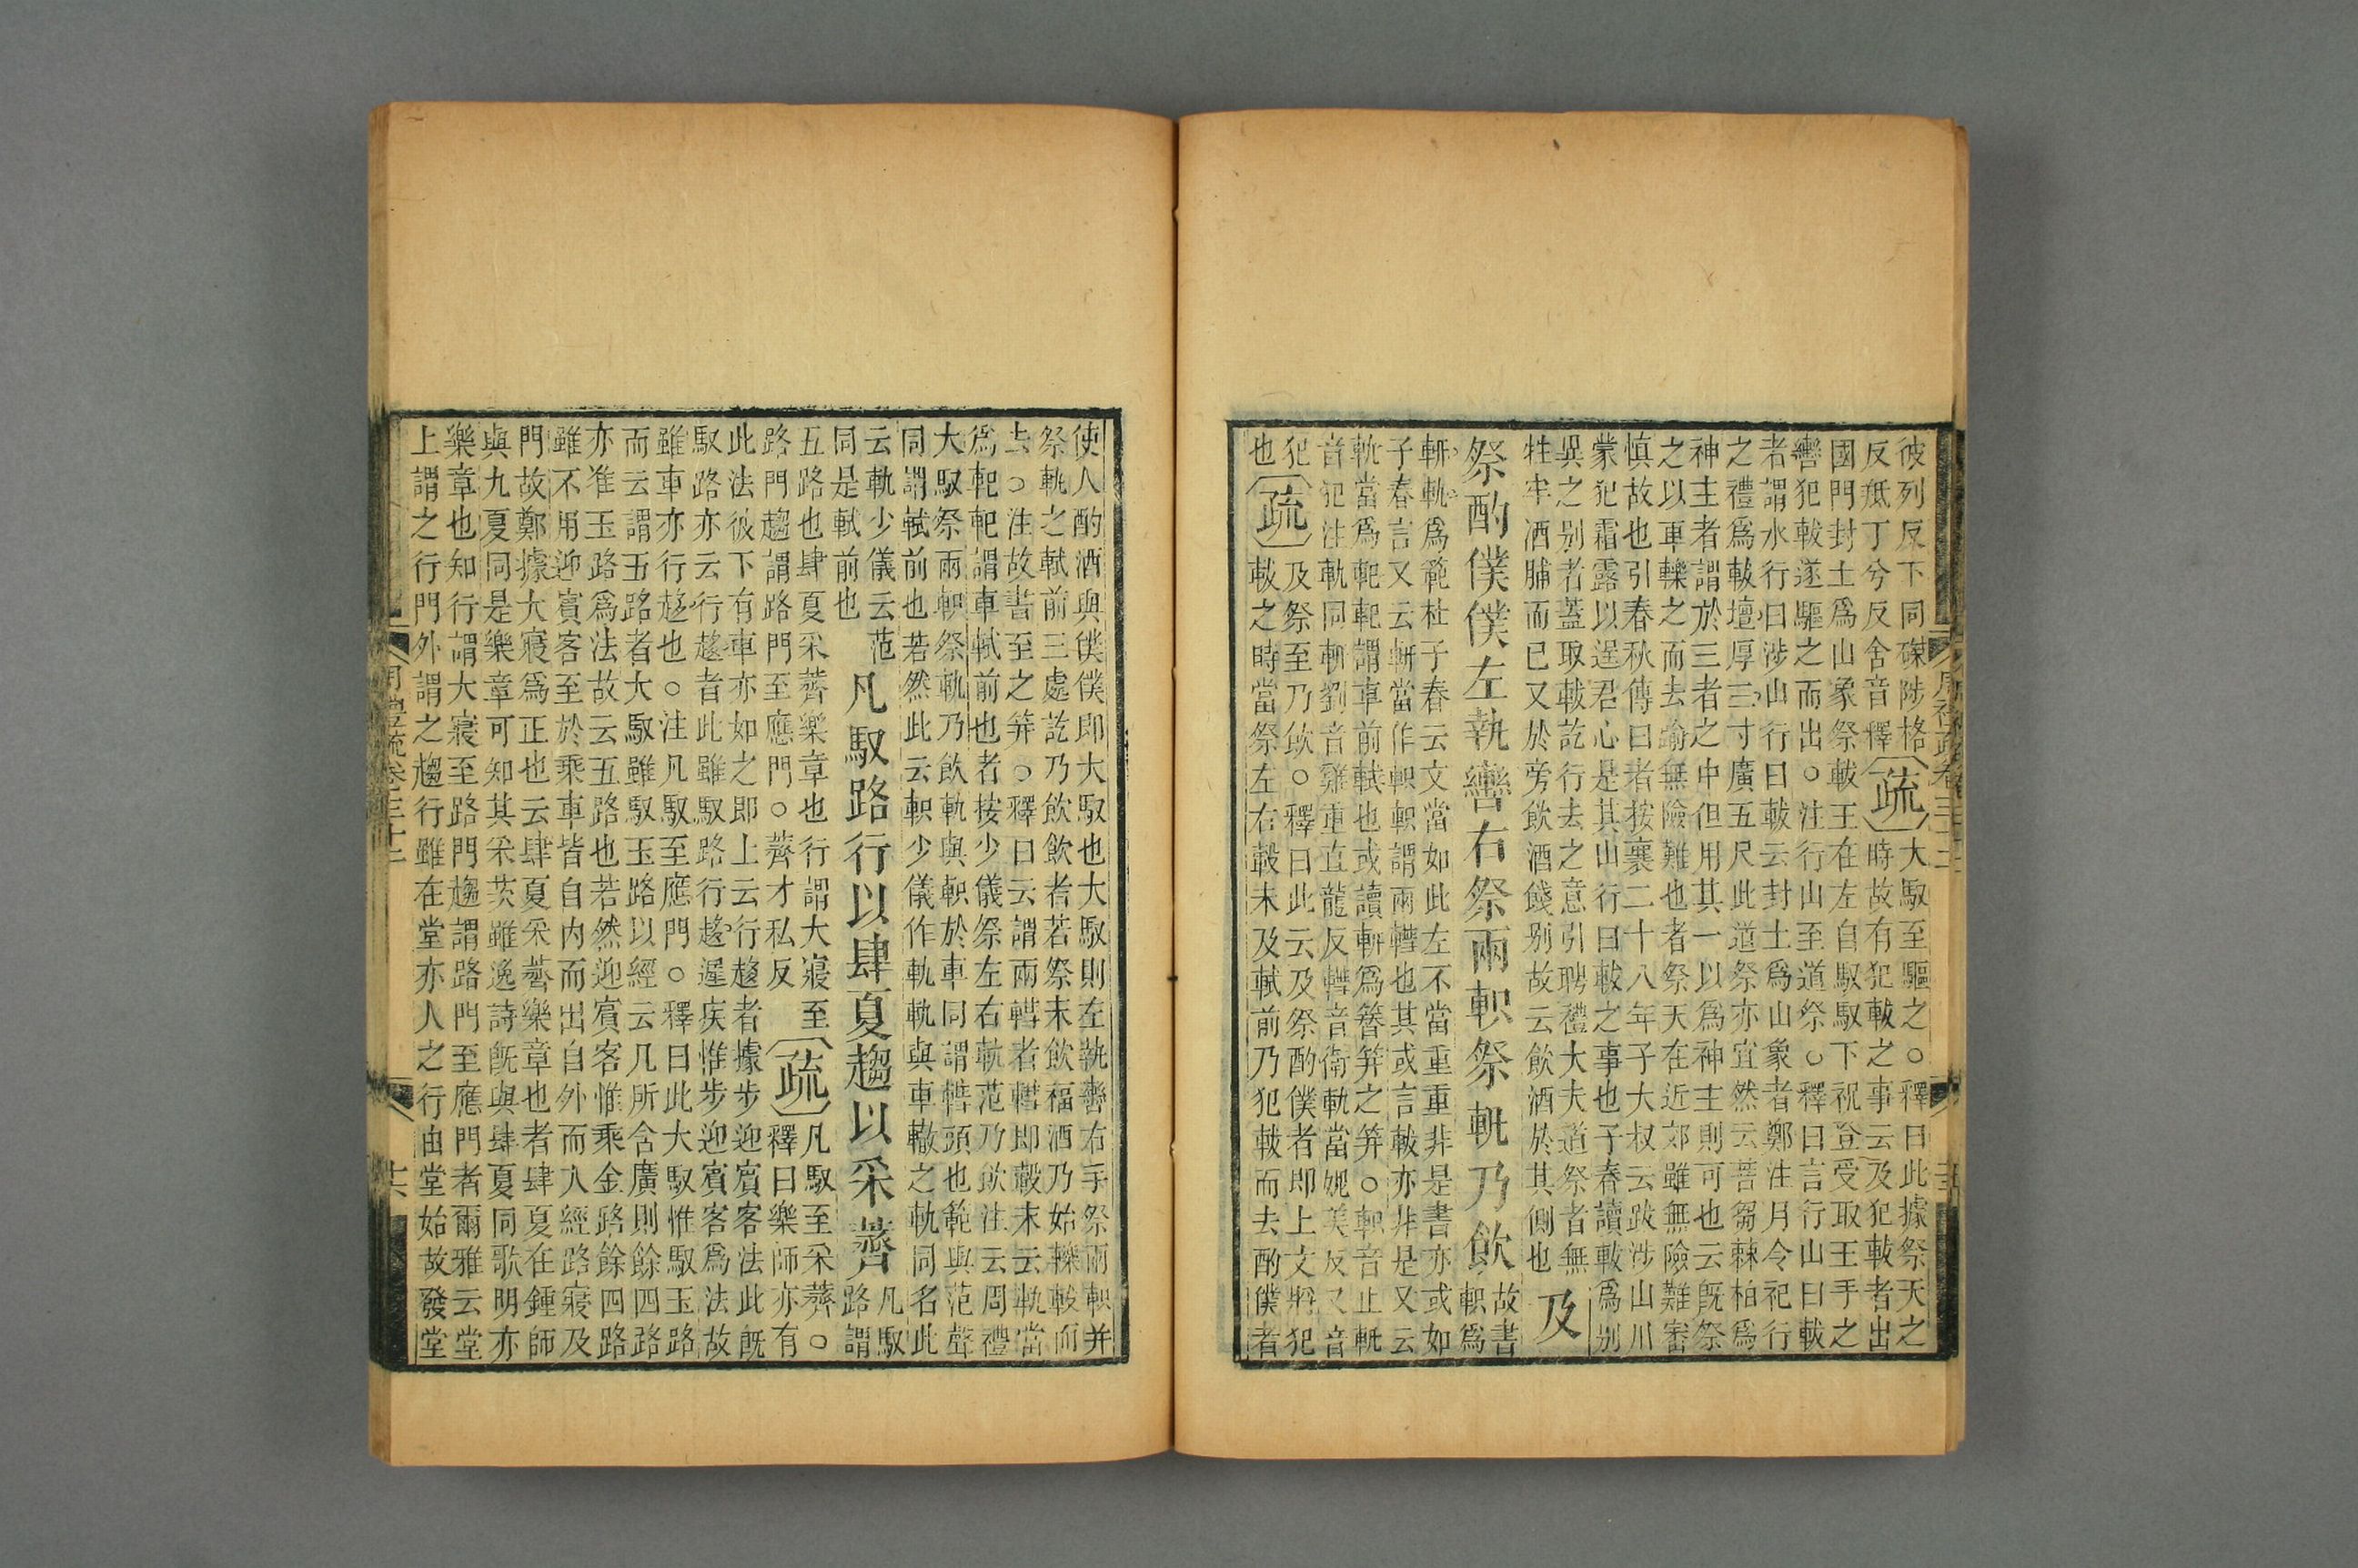 周禮疏卷三十二
彼列反下同磔陟格
反羝丁兮反舍音釋
疏
大馭至驅之○釋曰此據祭天之
時故有犯軷之事云及犯軷者出
國門封土爲山象祭軷王在左自馭馭下祝登受取王手之
轡犯軷遂驅之而出○注行山至道祭○釋曰言行山曰軷
者謂水行曰涉山行曰軷云封土爲山象者鄭注月令祀行
之禮爲軷壇厚三寸廣五尺此道祭亦宜然云菩芻棘柏爲
神主者謂於三者之中但用其一以爲神主則可也云既祭
之以車轢之而去喻無險難也者祭天在近郊雖無險難審
慎故也引春秋傳曰者按襄二十八年子大叔云跋涉山川
蒙犯霜露以逞君心是其山行曰軷之事也子春讀軷爲别
異之别者蓋取軷訖行去之意引聘禮大夫道祭者無
牲牢酒脯而已又於旁飲酒餞别故云飲酒於其側也
及
祭酌僕僕左執轡右祭兩軹祭軓乃飲
故書
軹爲
軿軓爲範杜子春云文當如此左不當重重非是書亦或如
子春言又云軿當作軹軹謂兩轊也其或言軷亦非是又云
軓當爲䡊䡊謂車前軾也或讀軿爲簪笄之笄○軹音止軓
音犯注軌同軿劉音雞重直龍反轊音衛軌當媿美反又音
犯
也
疏
及祭至乃飲○釋曰此云及祭酌僕者即上文將犯
軷之時當祭左右轂末及軾前乃犯軷而去酌僕者
使人酌酒與僕僕即大馭也大馭則左執轡右手祭兩軹并
祭軓之軾前三處訖乃飲飲者若祭末飲福酒乃始轢軷而
去○注故書至之笄○釋曰云謂兩轊者轊即轂末云軓當
爲䡊䡊謂車軾前也者按少儀祭左右軌范乃飲注云周禮
大馭祭兩軹祭軓乃飲軌與軹於車同謂轊頭也範與范聲
同謂軾前也若然此云軹少儀作軌軌與車轍之軌同名此
云軌少儀云范
同是軾前也
凡馭路行以肆夏趨以采薺
凡馭
路謂
五路也肆夏采薺樂章也行謂大寢至
路門趨謂路門至應門○薺才私反
疏
凡馭至采薺○
釋曰樂師亦有
此法彼下有車亦如之即上云行趨者據步迎賓客法此既
馭路亦云行趨者此雖馭路行趨遲疾惟步迎賓客爲法故
雖車亦行趨也○注凡馭至應門○釋曰此大馭惟馭玉路
而云謂五路者大馭雖馭玉路以經云凡所含廣則餘四路
亦准玉路爲法故云五路也若然迎賓客惟乘金路餘四路
雖不用迎賓客至於乘車皆自内而出自外而入經路寢及
門故鄭據大寢爲正也云肆夏采薺樂章也者肆夏在鍾師
與九夏同是樂章可知其采茨雖逸詩既與肆夏同歌明亦
樂章也知行謂大寢至路門趨謂路門至應門者爾雅云堂
上謂之行門外謂之趨行雖在堂亦人之行由堂始故發堂